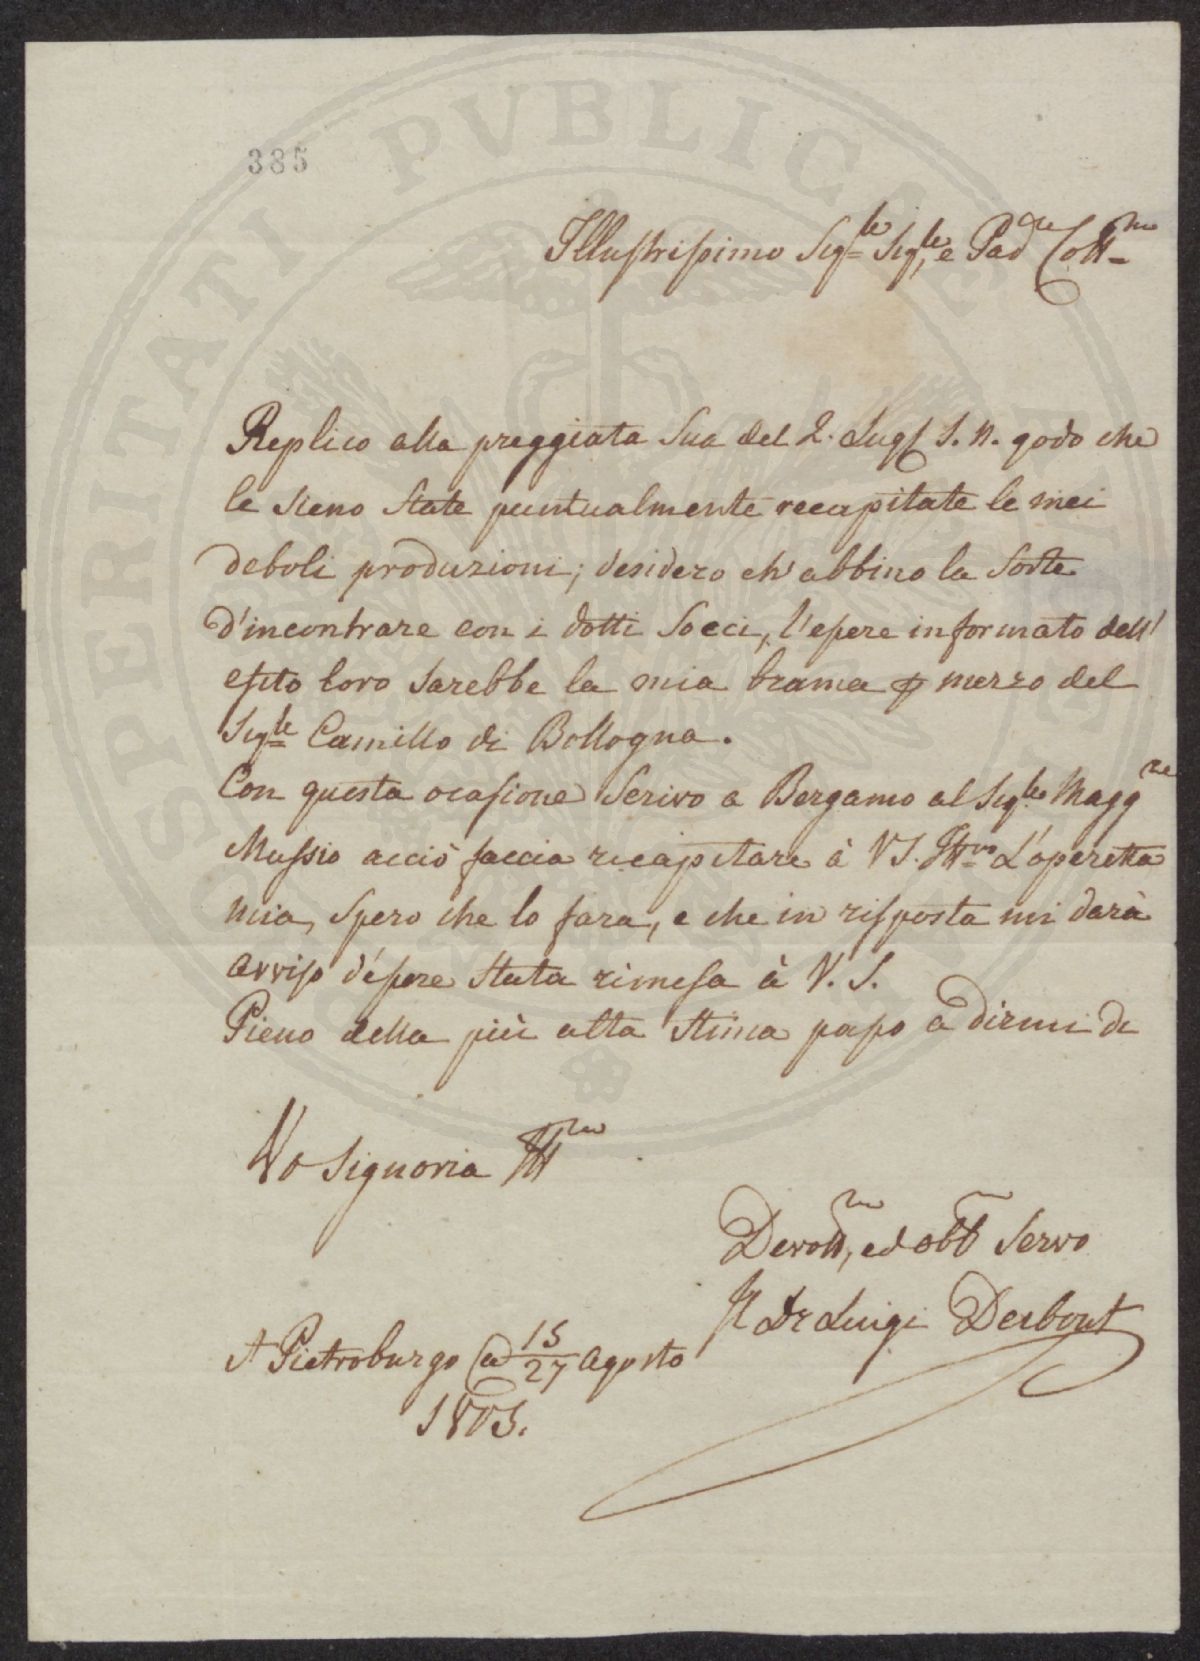 PROSPERITATI PVBLICAE AVGENDAE
385
Illustrissimo Sig.le Sig.le, e Pad.ne Coll.mo
Replico alla preggiata Sua del 2. Lug. S. N. godo che
le sieno State puntualmente recapitate le mei
deboli produzioni; desidero ch' abbino la Sorte
d'incontrare con i dotti Socci, l'essere informato dell'
esito loro sarebbe la mia brama p mezzo del
Sig.le Camillo di Bollogna.
Con questa ocasione Scrivo a Bergamo al Sig.le Magg.re
Mussio acciò faccia ricapitare à VS. Ill.ma L'operetta
mia, Spero che lo fara, e che in risposta mi darà
avviso d'essere Stata rimessa à V. S.
Pieno della più alta Stima passo a Dirmi di
Vo Signoria Ill.ma
Devott.mo, ed obb.mo Servo
Il Dr Luigi Deibout
A Pietroburgo a 15/27 Agosto
1803.